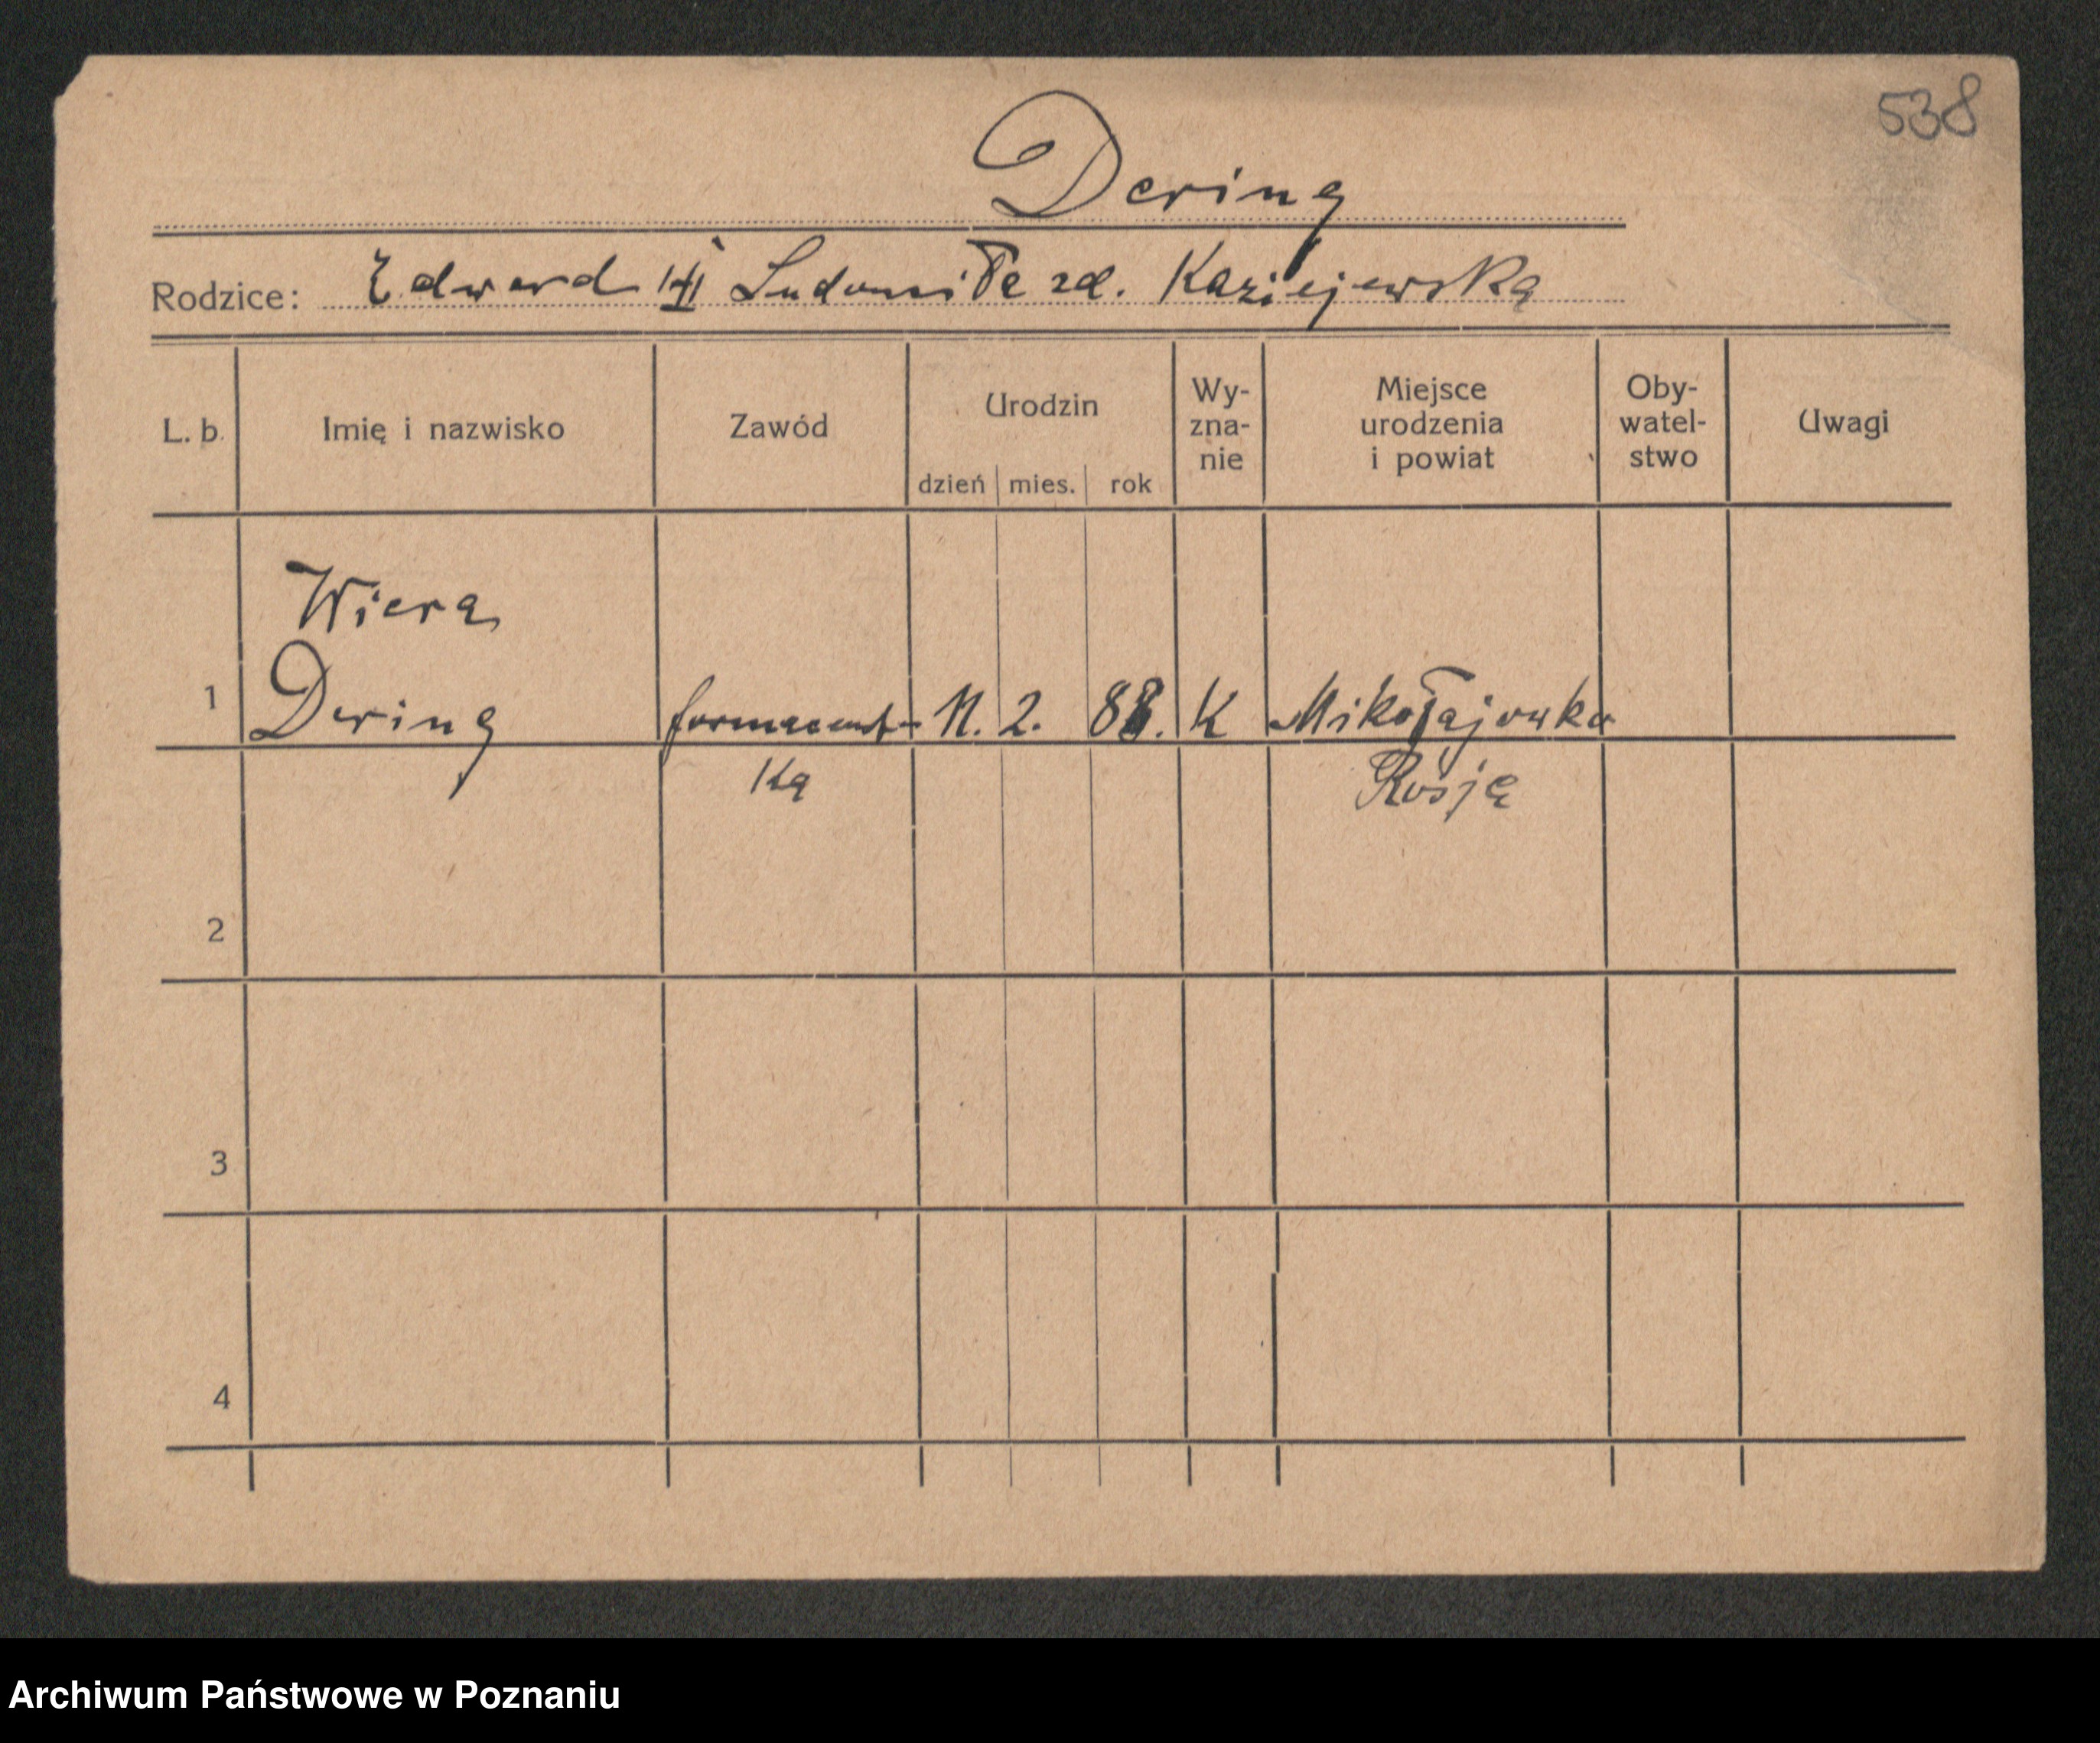 538
Dering
Rodzice: Edward i Ludomiła zd. Kaziejewska
L. b. Imię i nazwisko Zawód Urodzin dzień mies. rok Wy-zna-nie Miejsce urodzenia i powiat Oby-watel-stwo Uwagi
Wiera
1 Dering farmaceut- 11. 2. 88. K Mikołajowka
ka Rosja
2
3
4
Archiwum Państwowe w Poznaniu